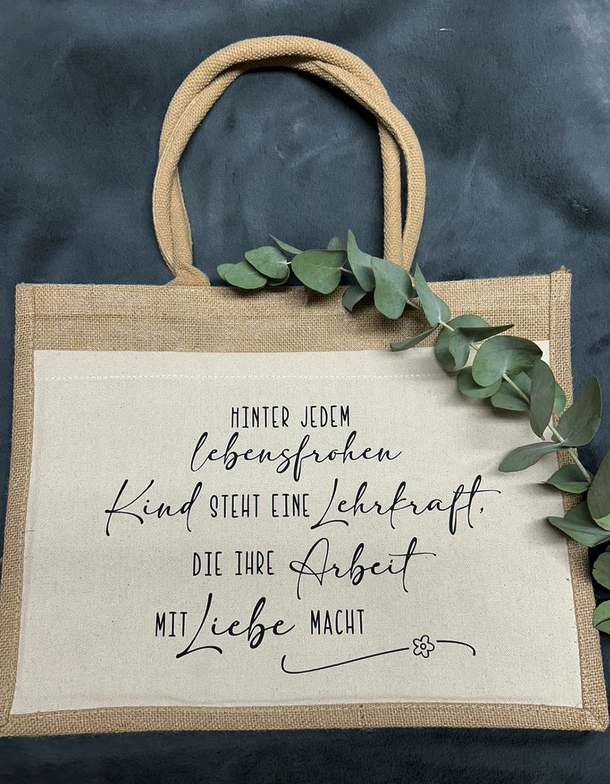 HINTER JEDEM
lebensfrohen
Kind STEHT EINE Lehrkraft,
DIE IHRE Arbeit
MIT Liebe MACHT